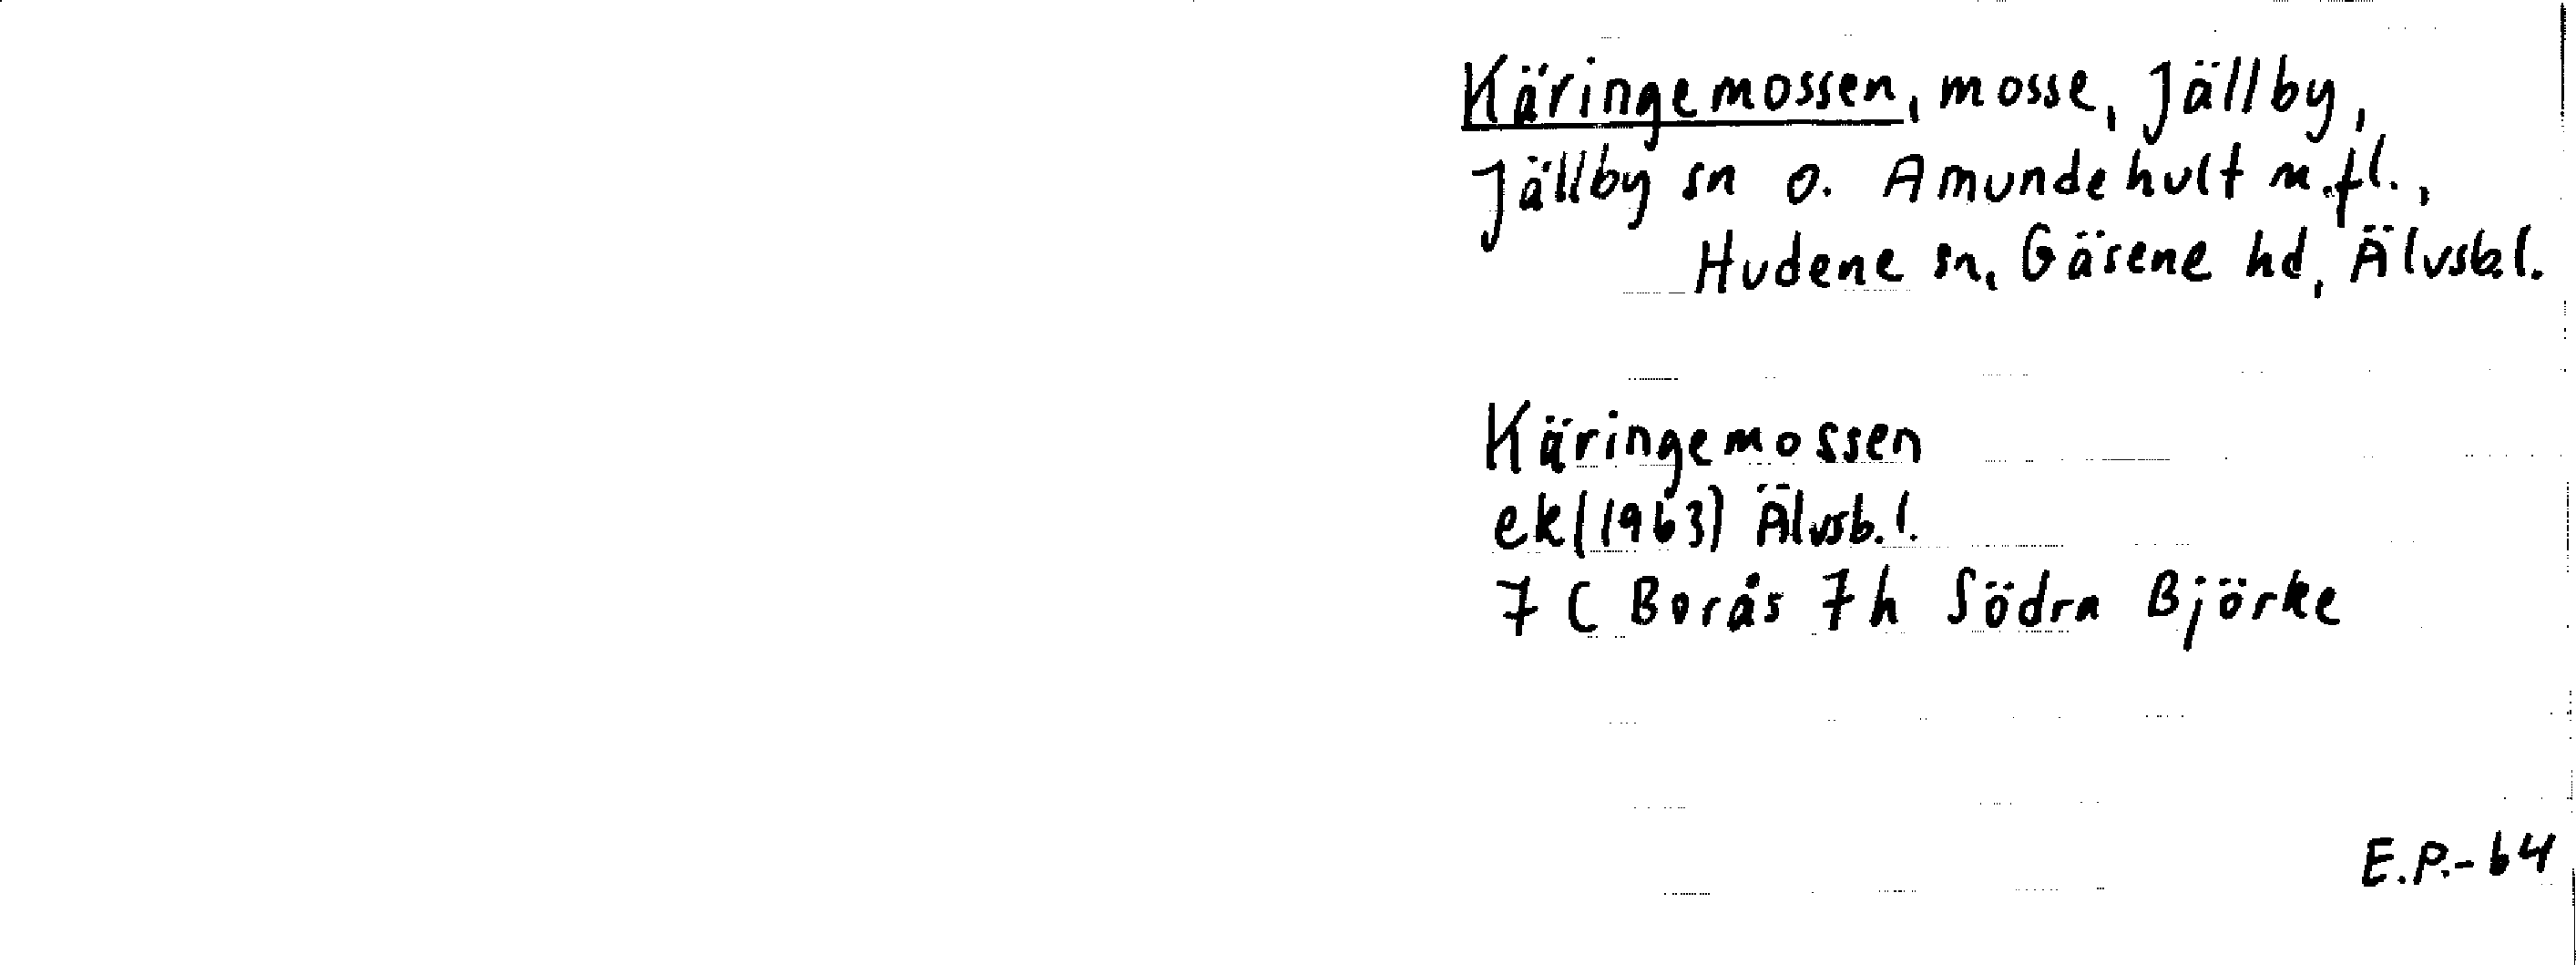 Käringemossen, mosse, Jällby,
Jällby sn o. Amundehult m.fl.,
Hudene sn, Gäsene hd, Älvsb.l.
Käringemossen
ek (1963) Älvsb.l.
7 C Borås 7h Södra Björke
E.P.-64